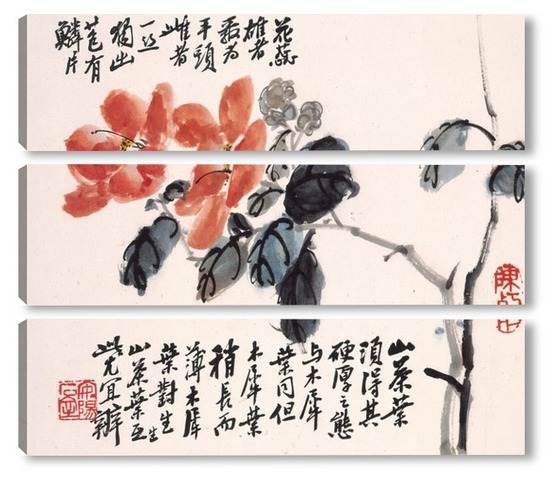 花蕊
雄者
最为
平頭
雌者
一丝
獨出
苞有
鱗片
山茶葉
須得其
硬厚之態
与木犀
葉同但
木犀葉
稍長而
薄木犀
葉對生
山茶葉互生
此尤宜辨
陳半丁